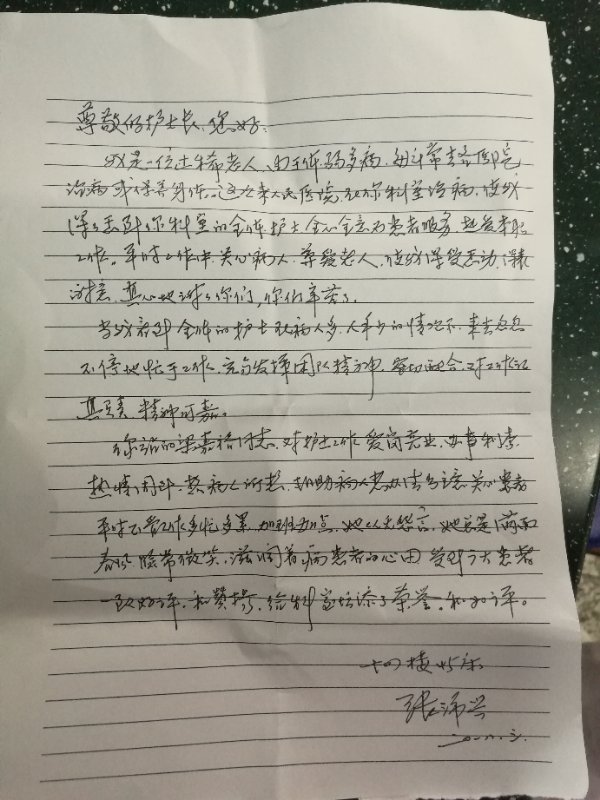 尊敬的护士长、您好
我是一位古稀老人,由于体弱多病,每年常去各医院
治病或保养身体。这次来人民医院,到你科室治病,使我
深受感到你科室的全体护士全心全意为患者服务,热爱本职
工作。平时工作中,关心病人,尊爱老人,使我深受感动,深表
谢意,真心地谢谢你们,你们辛苦了。
当我看到全体的护士在病人多,人手少的情况下,来去匆匆
不停地忙于工作,充分发挥团队精神,密切配合,对工作认
真负责,精神可嘉。
你站的梁嘉裕同志,对护士工作爱岗敬业,办事利索
热情周到,热病人
平时不管工作多忙多累,加班加点,她从无怨言,她总是满面
春风,脸带微笑,滋润着病患者的心田,受到广大患者
一致好评,和赞扬,给科室增添了荣誉,和好评。
十四楼
张